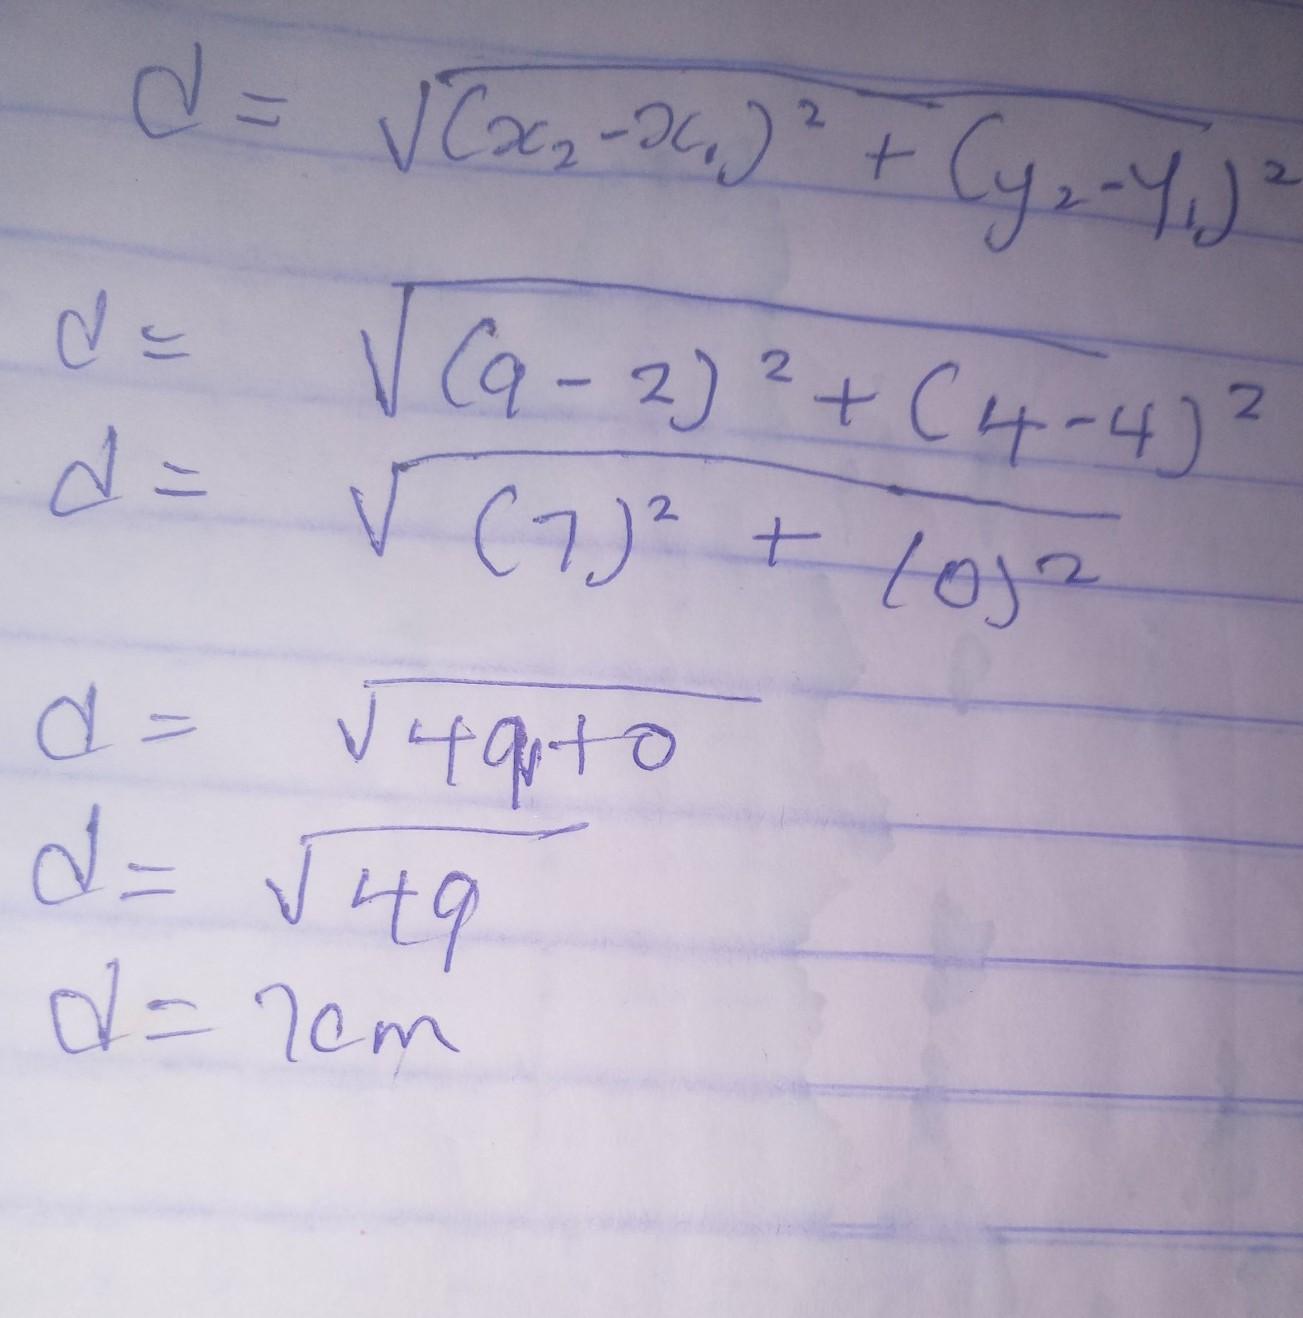 d = √(x₂-x₁)² + (y₂-y₁)²
d = √(9-2)² + (4-4)²
d = √(7)² + (0)²
d = √49+0
d = √49
d = 7cm